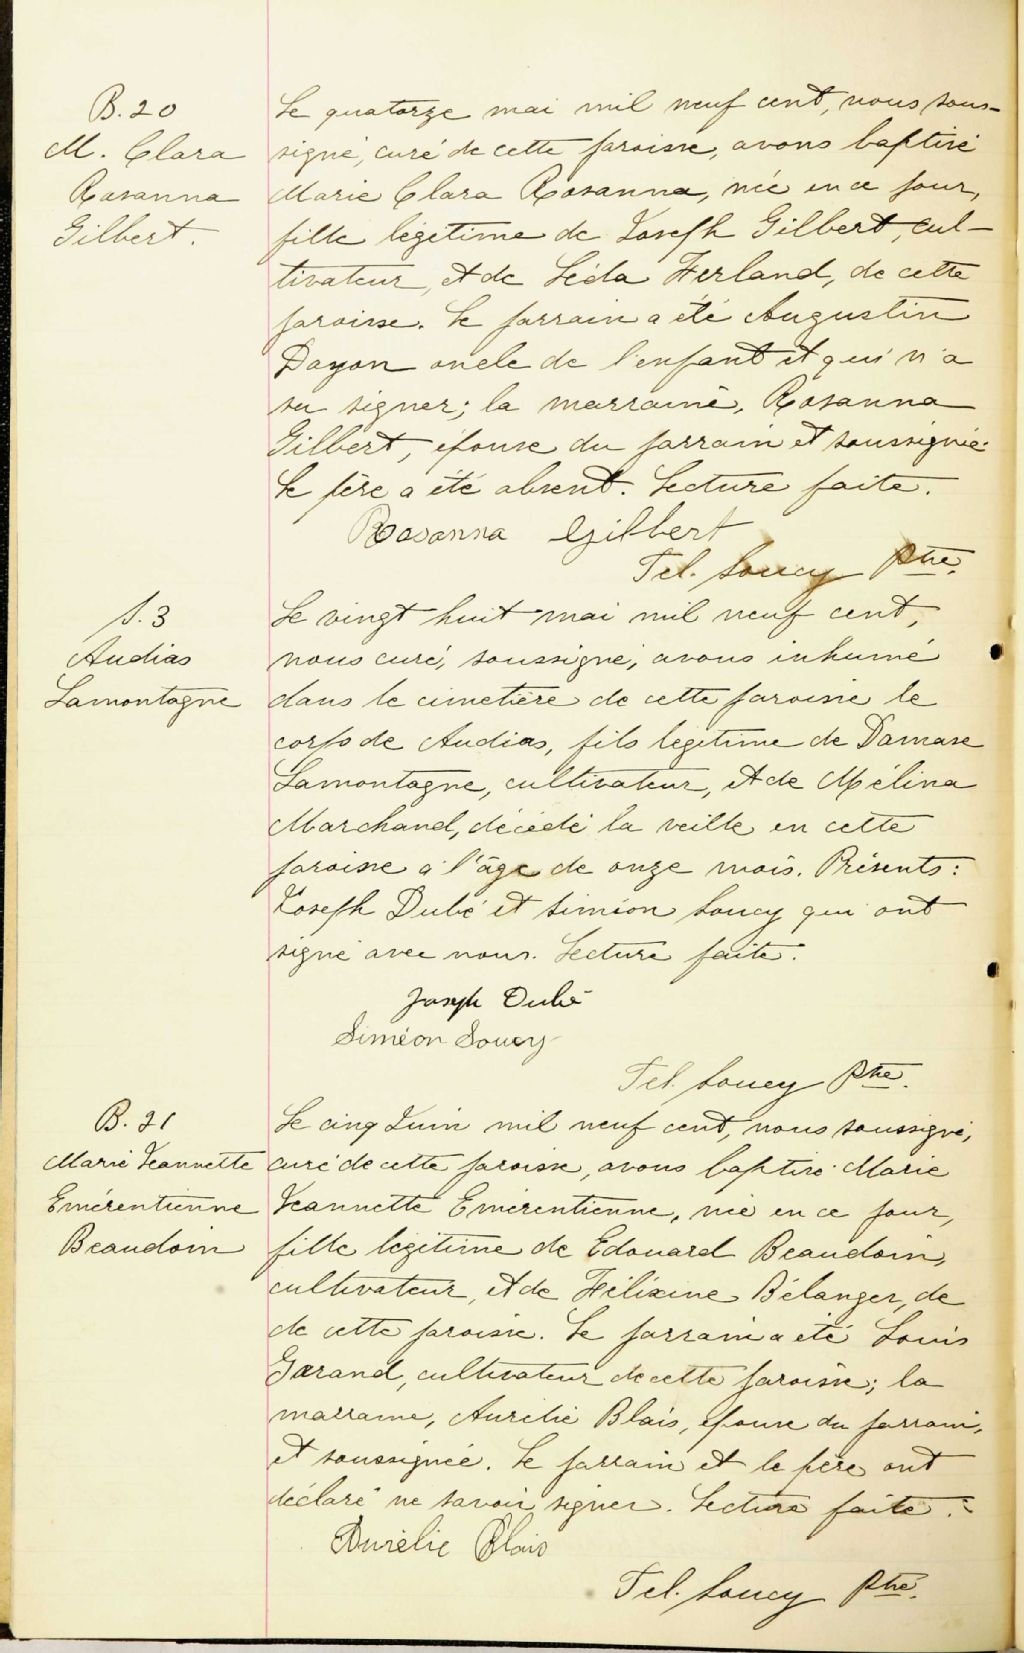 B. 20
M. Clara
Rosanna
Gilbert.
Le quatorze mai mil neuf cent, nous sous-
signé, curé de cette paroisse, avons baptisé
Marie Clara Rosanna, née en ce jour,
fille légitime de Joseph Gilbert, cul-
tivateur, et de Léda Ferland, de cette
paroisse. Le parrain a été Augustin
Doyon oncle de l'enfant et qui n'a
su signer; la marraine, Rosanna
Gilbert, épouse du parrain et soussignée.
Le père a été absent. Lecture faite.
Rosanna Gilbert
Tél. Soucy Ptre.
S. 3
Audias
Lamontagne
Le vingt huit mai mil neuf cent,
nous curé, soussigné, avons inhumé
dans le cimetière de cette paroisse le
corps de Audias, fils légitime de Damase
Lamontagne, cultivateur, et de Mélina
Marchand, décédé la veille en cette
paroisse a l'âge de onze mois. Présents:
Joseph Dubé et Siméon Soucy qui ont
signé avec nous. Lecture faite.
Joseph Dubé
Siméon Soucy
Tél. Soucy Ptre.
B. 21
Marie Jeannette
Emérentienne
Beaudoin
Le cinq Juin mil neuf cent, nous soussigné,
curé de cette paroisse, avons baptisé Marie
Jeannette Emérentienne, née en ce jour,
fille légitime de Edouard Beaudoin,
cultivateur, et de Félixine Bélanger, de
de cette paroisse. Le parrain a été Louis
Garand, cultivateur de cette paroisse; la
marraine, Aurélie Blais, épouse du parrain,
et soussignée. Le parrain et le père ont
déclaré ne savoir signer. Lecture faite.
Aurélie Blais
Tél. Soucy Ptre.